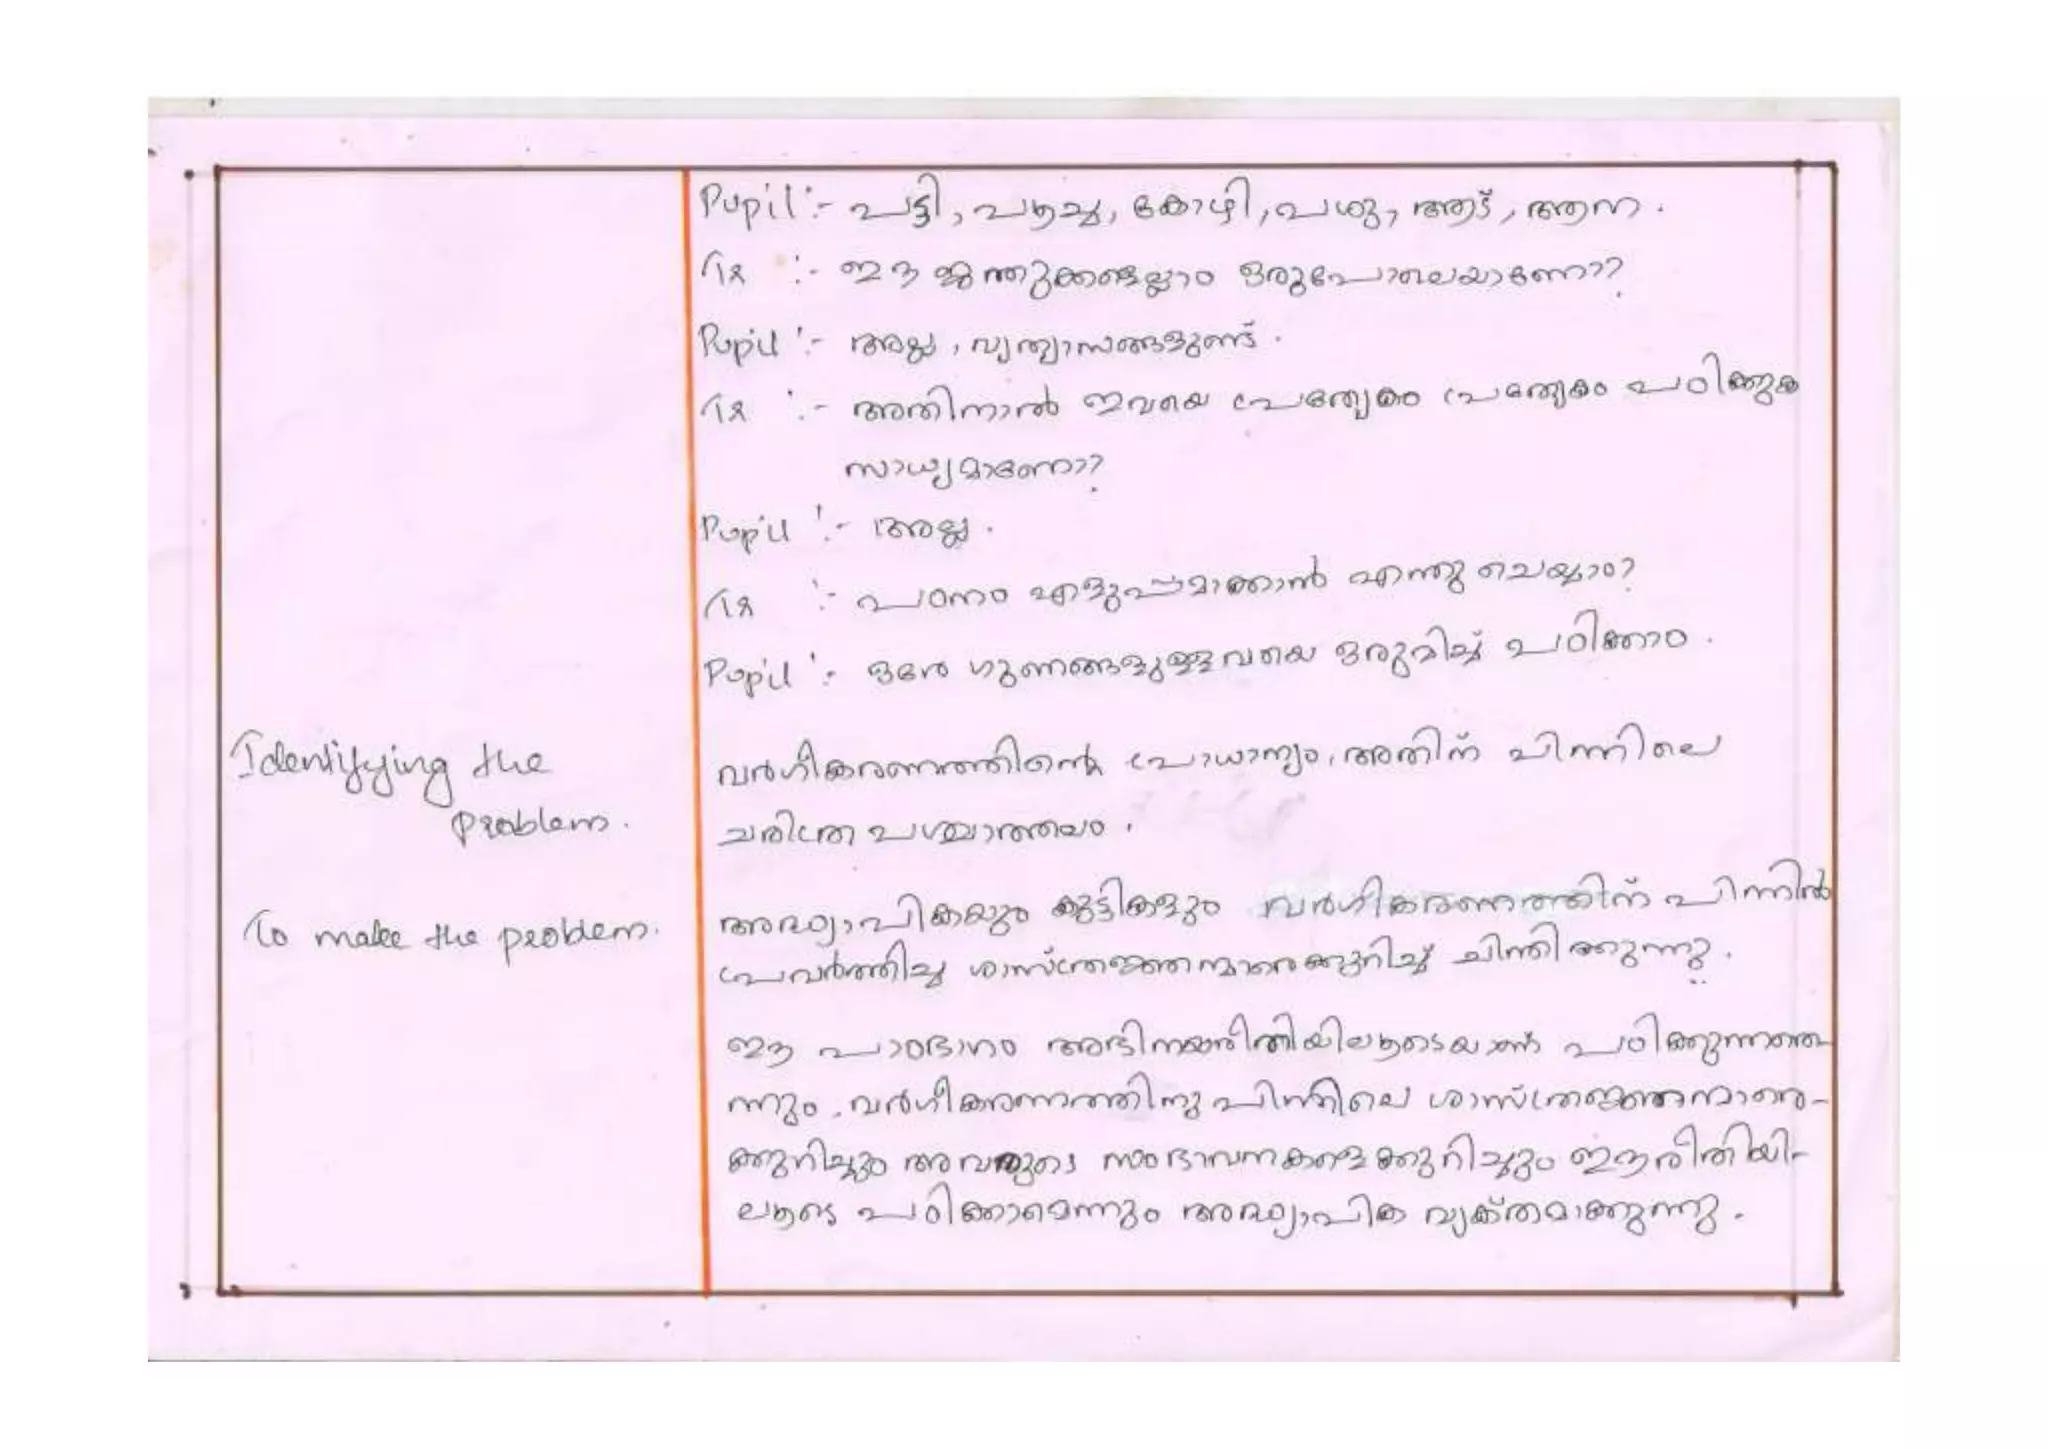 Pupil :- പട്ടി, പൂച്ച, കോഴി, പശു, ആട്, ആന.
Tr :- ഈ ജന്തുക്കളെല്ലാം ഒരുപോലെയാണോ?
Pupil :- അല്ല, വ്യത്യാസങ്ങളുണ്ട്.
Tr :- അതിനാൽ ഇവയെ പ്രത്യേകം പ്രത്യേകം പഠിക്കുക
സാധ്യമാണോ?
Pupil :- അല്ല.
Tr :- പഠനം എളുപ്പമാക്കാൻ എന്തു ചെയ്യാം?
Pupil :- ഒരേ ഗുണങ്ങളുള്ളവയെ ഒരുമിച്ച് പഠിക്കാം.
Identifying the
problem.
വർഗീകരണത്തിന്റെ പ്രാധാന്യം, അതിന് പിന്നിലെ
ചരിത്ര പശ്ചാത്തലം.
To make the problem.
അദ്ധ്യാപികയും കുട്ടികളും വർഗീകരണത്തിന് പിന്നിൽ
പ്രവർത്തിച്ച ശാസ്ത്രജ്ഞന്മാരെക്കുറിച്ച് ചിന്തിക്കുന്നു.
ഈ പാഠഭാഗം അഭിനയരീതിയിലൂടെയാണ് പഠിക്കുന്നതെ-
ന്നും, വർഗീകരണത്തിനു പിന്നിലെ ശാസ്ത്രജ്ഞന്മാരെ-
ക്കുറിച്ചും അവരുടെ സംഭാവനകളെക്കുറിച്ചും ഈ രീതിയി-
ലൂടെ പഠിക്കാമെന്നും അദ്ധ്യാപിക വ്യക്തമാക്കുന്നു.